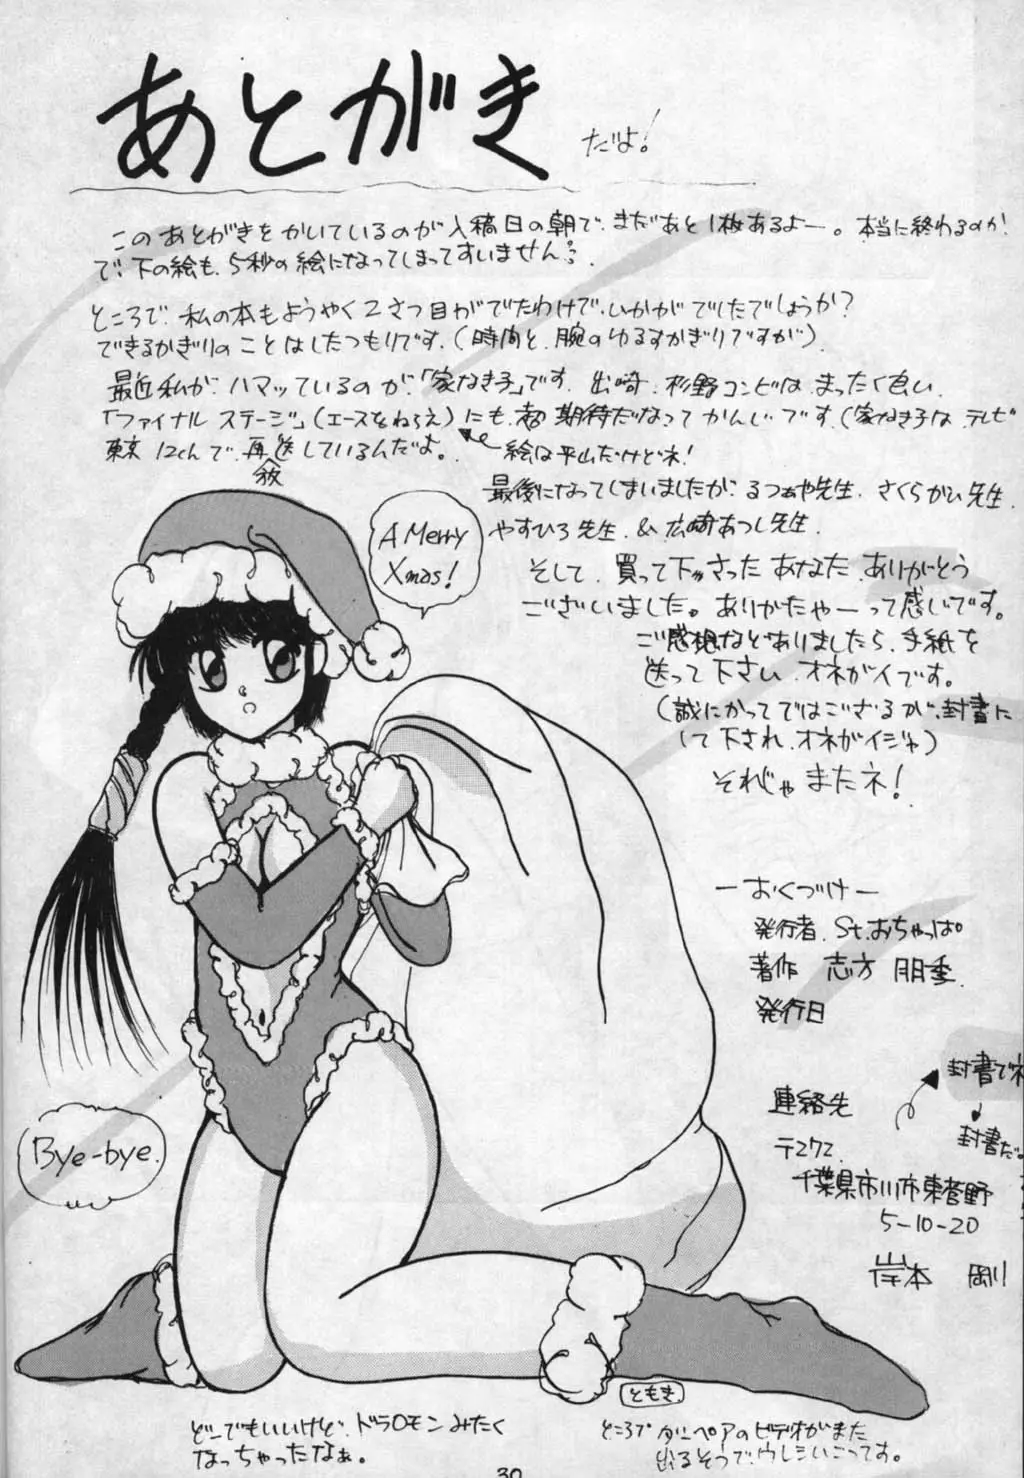 あとがき だよ!
このあとがきをかいているのが入稿日の朝で、まだあと1枚あるよー。本当に終わるのか
で、下の絵も、5秒の絵になってしまってすいません。
ところで、私の本もようやく2さつ目がでたわけで、いかがでしたでしょうか?
できるかぎりのことはしたつもりです。(時間と、腕のゆるすかぎりですが)
最近私が、ハマッているのが、「家なき子」です。出崎、杉野コンビは、まったく良い。
「ファイナルステージ」(エースをねらえ)にも、超期待だなってかんじです。(家なき子は、テレビ
東京12chで、再放送しているんだよ。
絵は平山だけどネ!
最後になってしまいましたが、るつぁや先生、さくらがひ先生、
やすひろ先生、&広崎あつし先生、
そして、買って下さったあなた、ありがとう
ございました。ありがたやーって感じです。
ご感想などありましたら、手紙を
送って下さい、オネガイです。
(誠にかってではござるが、封書に
して下され、オネガイジャ)
それじゃまたネ!
A Merry
Xmas!
ーおくづけー
発行者、St.おちゃっぱ
著作 志方 朋季
発行日
封書でネ
封書だ
連絡先
〒272
千葉県市川市東菅野
5-10-20
岸本 剛
Bye-bye.
ともき
どーでもいいけど、ドラ○モンみたく
なっちゃったなぁ。
ところで ダーペアのビデオがまた
出るそうで、ウレシいこってす。
30